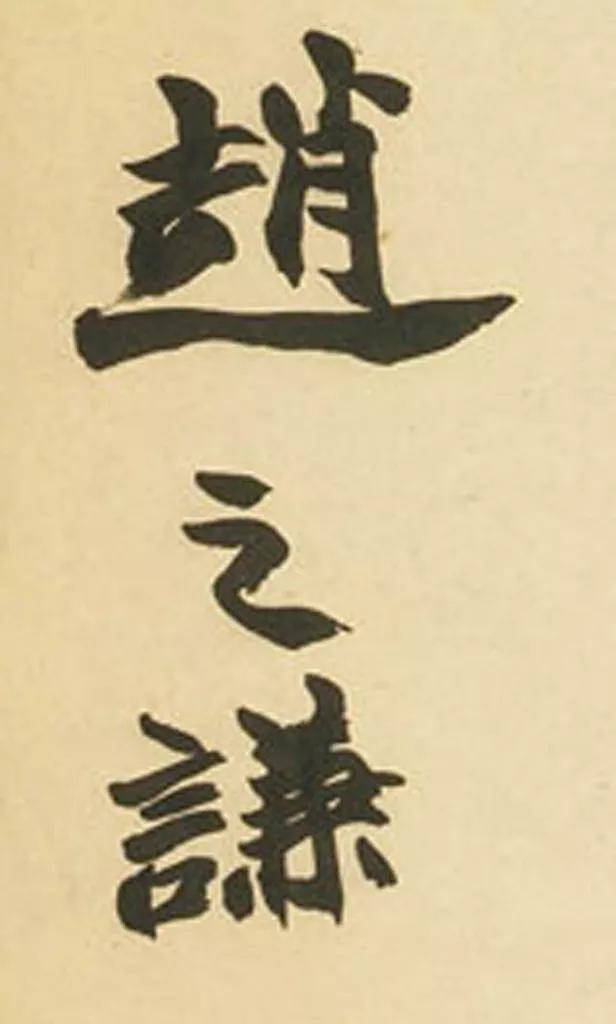 趙之謙